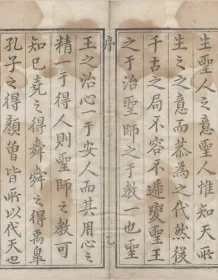 生聖人之意聖人惟知天
生之之意而恭為之代然後
千古之局不容不遞變聖王
之于治聖師之于教一也聖
序
王之治心一于安人而其用心之
精一于得人則聖師之教可
知已堯之得舜舜之得禹皐
孔子之得顏曾皆所以代天也